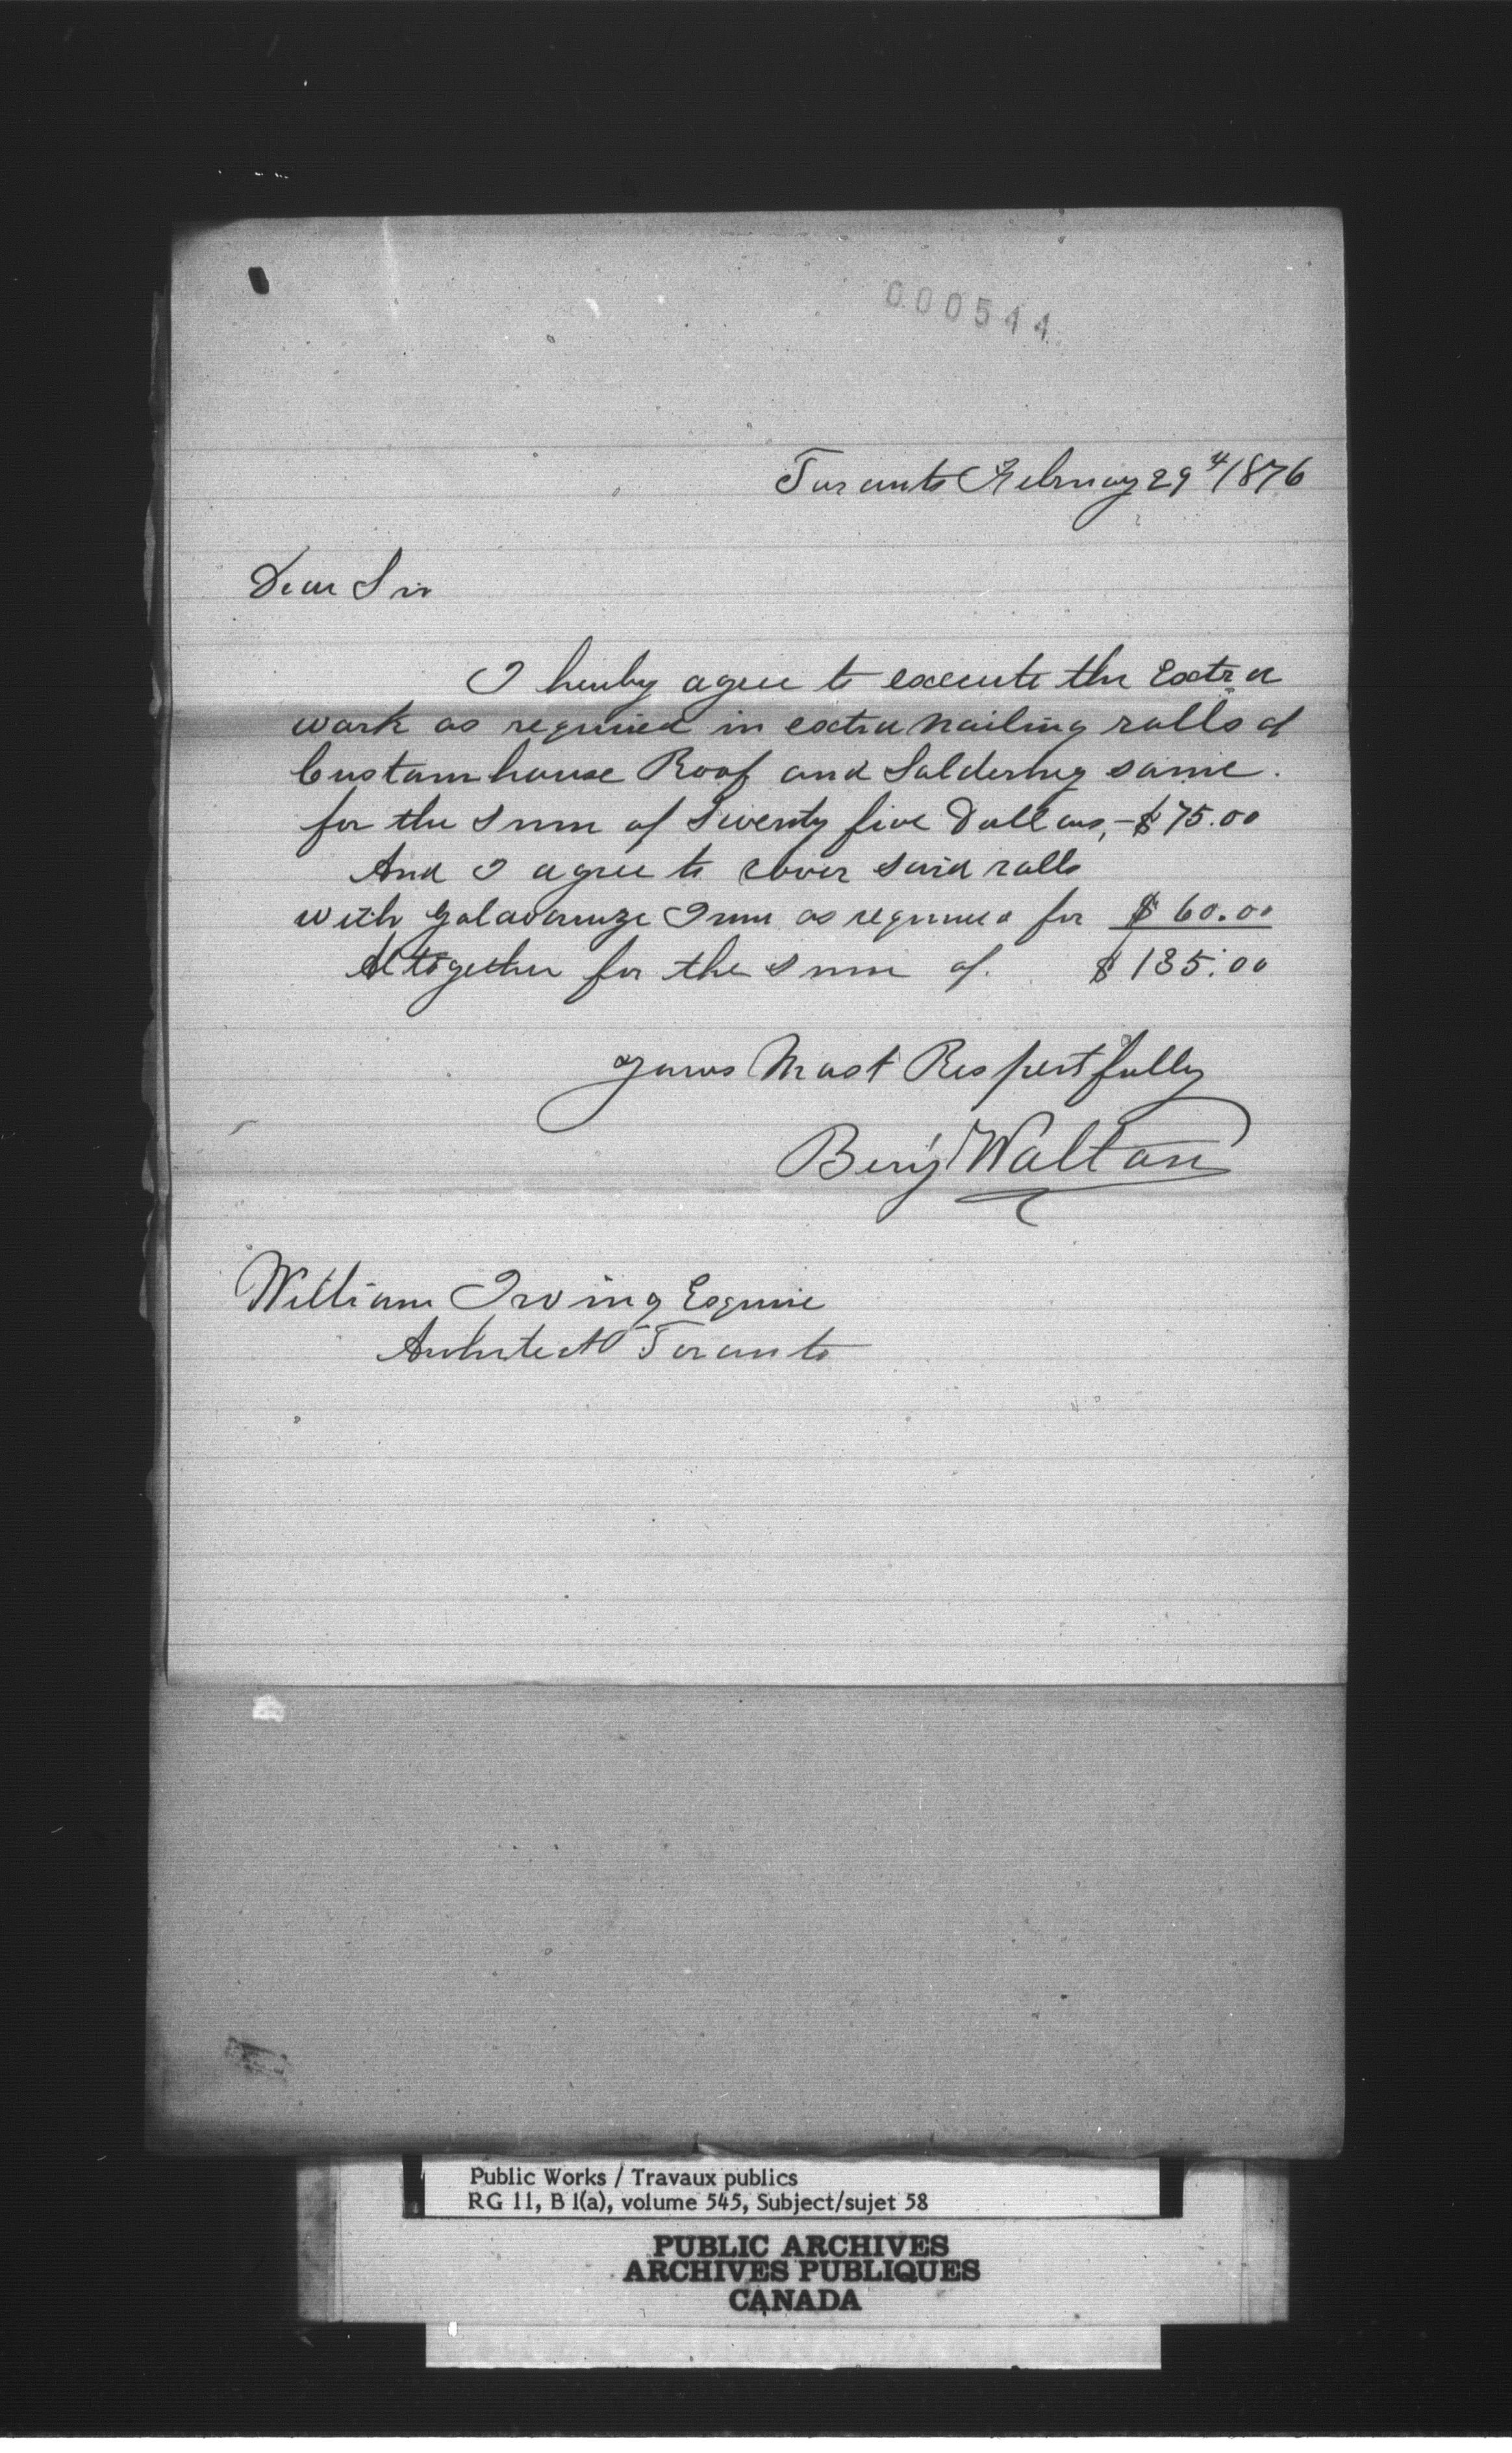 000544
Toronto February 29th/1876
Dear Sir
I hereby agree to execute the Extra
work as required in extra nailing rolls of
Custom house Roof and Soldering same.
for the sum of Seventy five Dollars, - $75.00
And I agree to cover said rolls
with Galavanize Iron as required for $60.00
Altogether for the sum of. $135.00
Yours Most Respectfully
Benj Walton
William Irving Esquire
Architect Toronto
Public Works / Travaux publics
RG 11, B 1(a), volume 545, Subject/sujet 58
PUBLIC ARCHIVES
ARCHIVES PUBLIQUES
CANADA